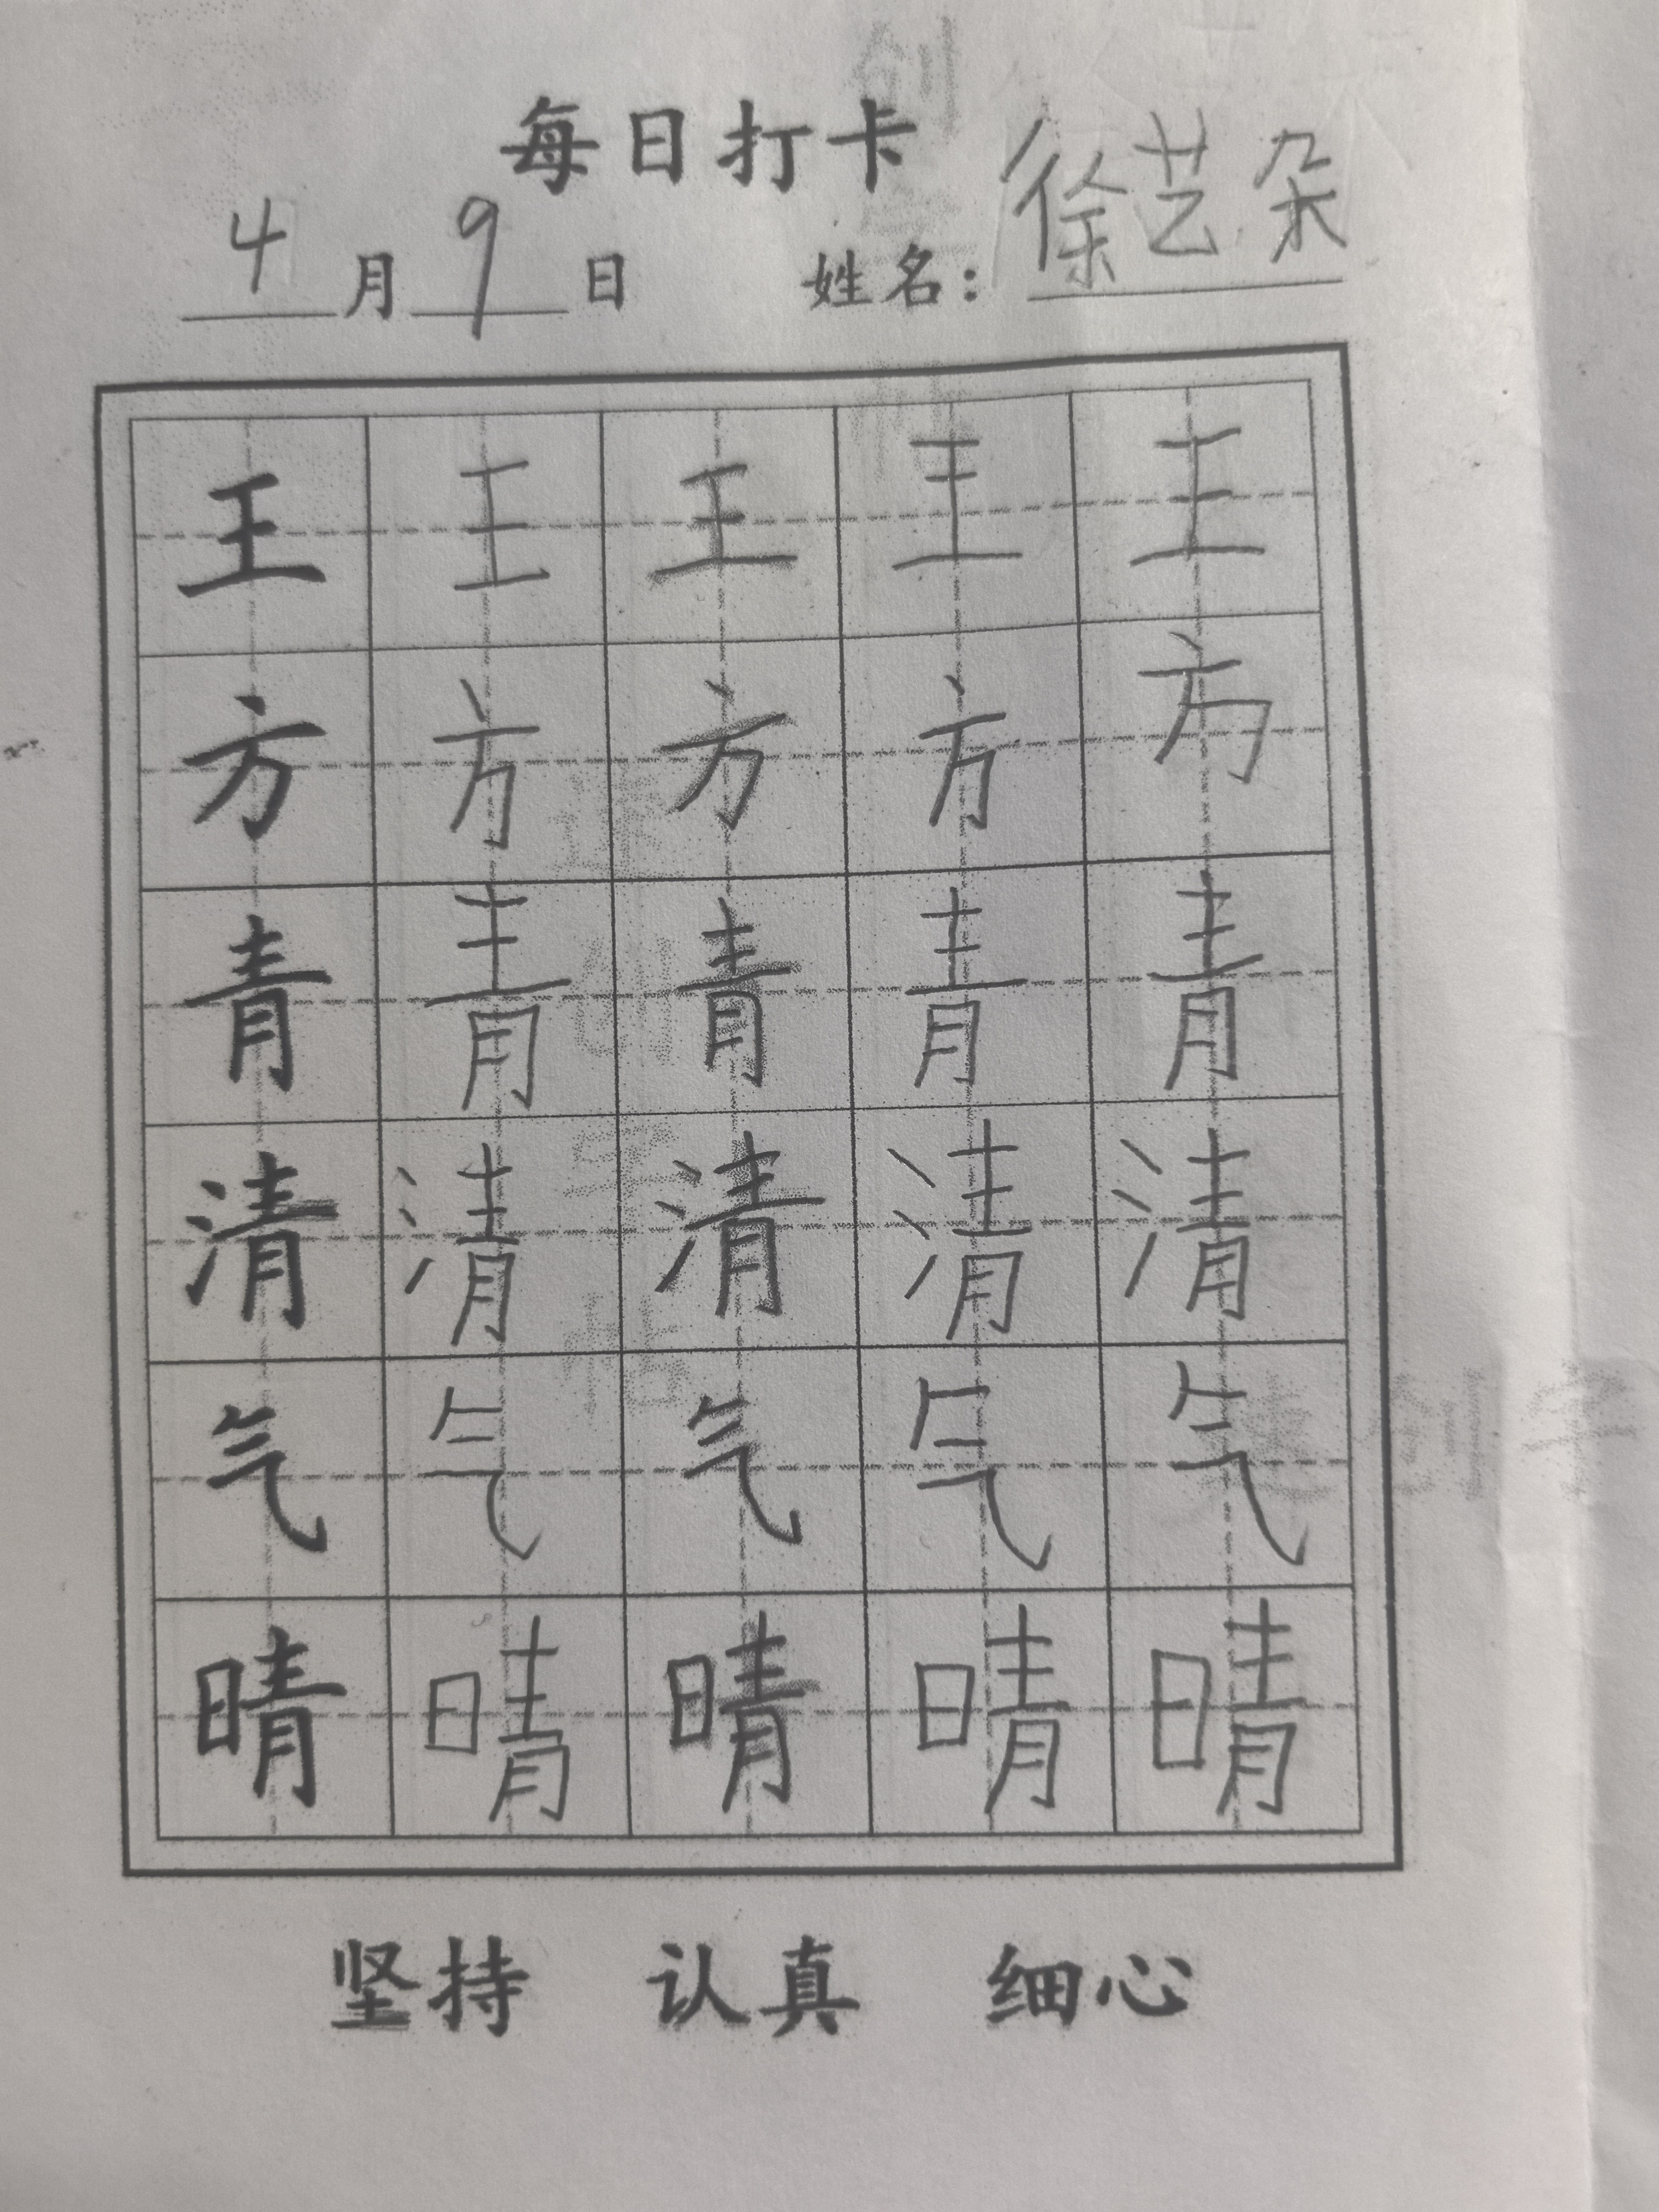 每日打卡
4月9日 姓名：徐艺朵
王 王 王 王 王
方 方 方 方 方
青 青 青 青 青
清 清 清 清 清
气 气 气 气 气
晴 晴 晴 晴 晴
坚持 认真 细心